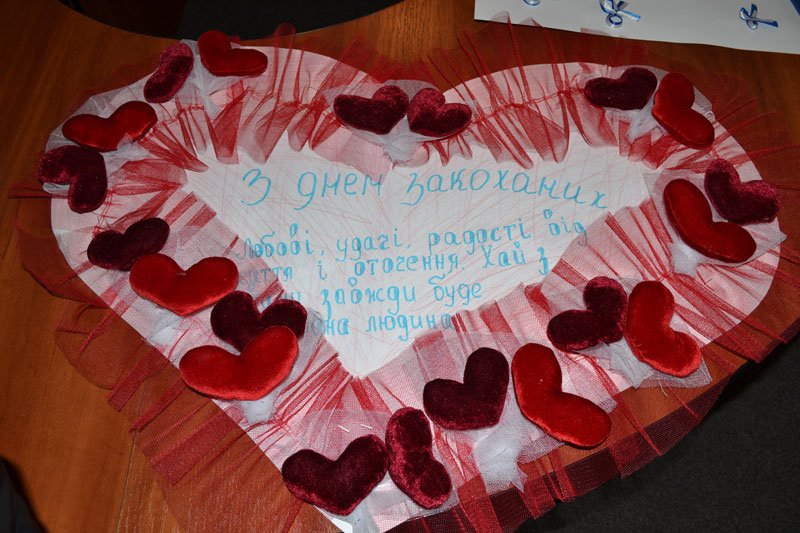 З днем закоханих
Любові, удачі, радості від
життя і оточення. Хай з
завжди буде
людина